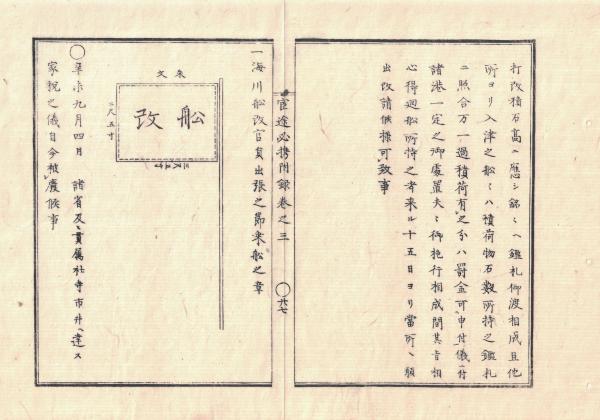 打改積石高ニ應シ銘々ヘ鑑札御渡相成且他
所ヨリ入津之舩々ハ積荷物石数所持之鑑札
ニ照合万一過積荷有之分ハ罰金可申付儀ハ
諸港一定之御處置夫々御施行相成間其旨相
心得廻舩所持之者来ル十五日ヨリ當所ヘ願
出改請候様可致事
官途必携附録巻之三
○廿七
一海川舩改官員出張之節乗舩之章
朱文
舩改
二尺五寸
○辛未九月四日 諸省及ヒ貫属社寺市井ヘ達ス
家税之儀自今被廢候事